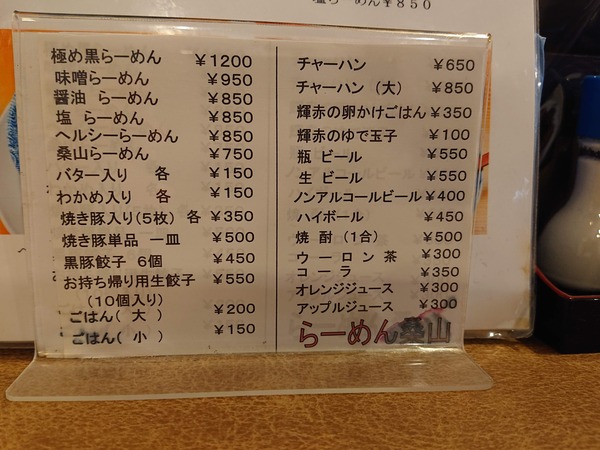 塩らーめん¥850
極め黒らーめん ¥1200
味噌らーめん ¥950
醤油 らーめん ¥850
塩 らーめん ¥850
ヘルシーらーめん ¥850
桑山らーめん ¥750
バター入り 各 ¥150
わかめ入り 各 ¥150
焼き豚入り(5枚) 各 ¥350
焼き豚単品 一皿 ¥500
黒豚餃子 6個 ¥450
お持ち帰り用生餃子 ¥550
(10個入り)
ごはん( 大 ) ¥200
ごはん( 小 ) ¥150
チャーハン ¥650
チャーハン (大) ¥850
輝赤の卵かけごはん ¥350
輝赤のゆで玉子 ¥100
瓶 ビール ¥550
生 ビール ¥550
ノンアルコールビール ¥400
ハイボール ¥450
焼 酎 (1合) ¥500
ウーロン 茶 ¥300
コーラ ¥350
オレンジジュース ¥300
アップルジュース ¥300
らーめん桑山